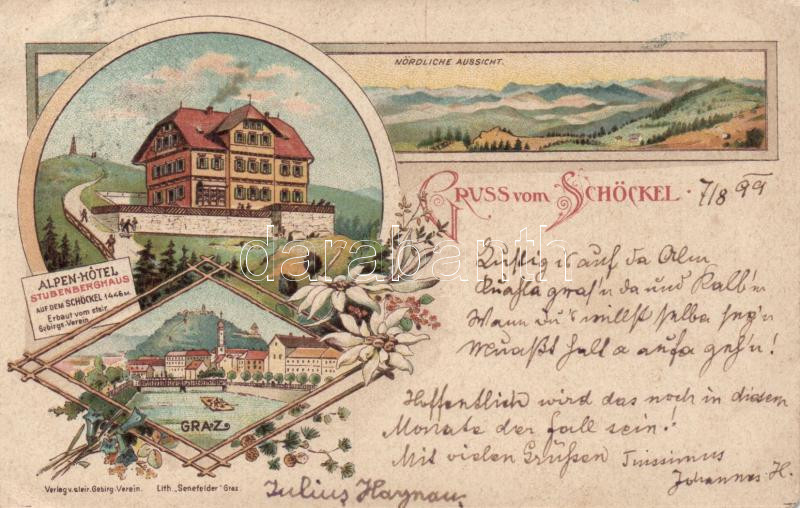 NÖRDLICHE AUSSICHT.
GRUSS VOM SCHÖCKEL.
7/8 99
ALPEN-HÔTEL
STUBENBERGHAUS
AUF DEM SCHÖCKEL 1446 M.
Erbaut vom steir.
Gebirgs-Verein.
Lustig is auf da Alm,
Kuahla gras'n da und Kalb'n
Wann du's willst selba seg'n
Muaßt halt a aufa geh'n!
Hoffentlich wird das noch in diesem
Monate der Fall sein!
Mit vielen Grüßen
Johannes H.
GRAZ
Verlag v. steir. Gebirg.-Verein.
Lith. „Senefelder" Graz.
Julius Haynau
darabanth